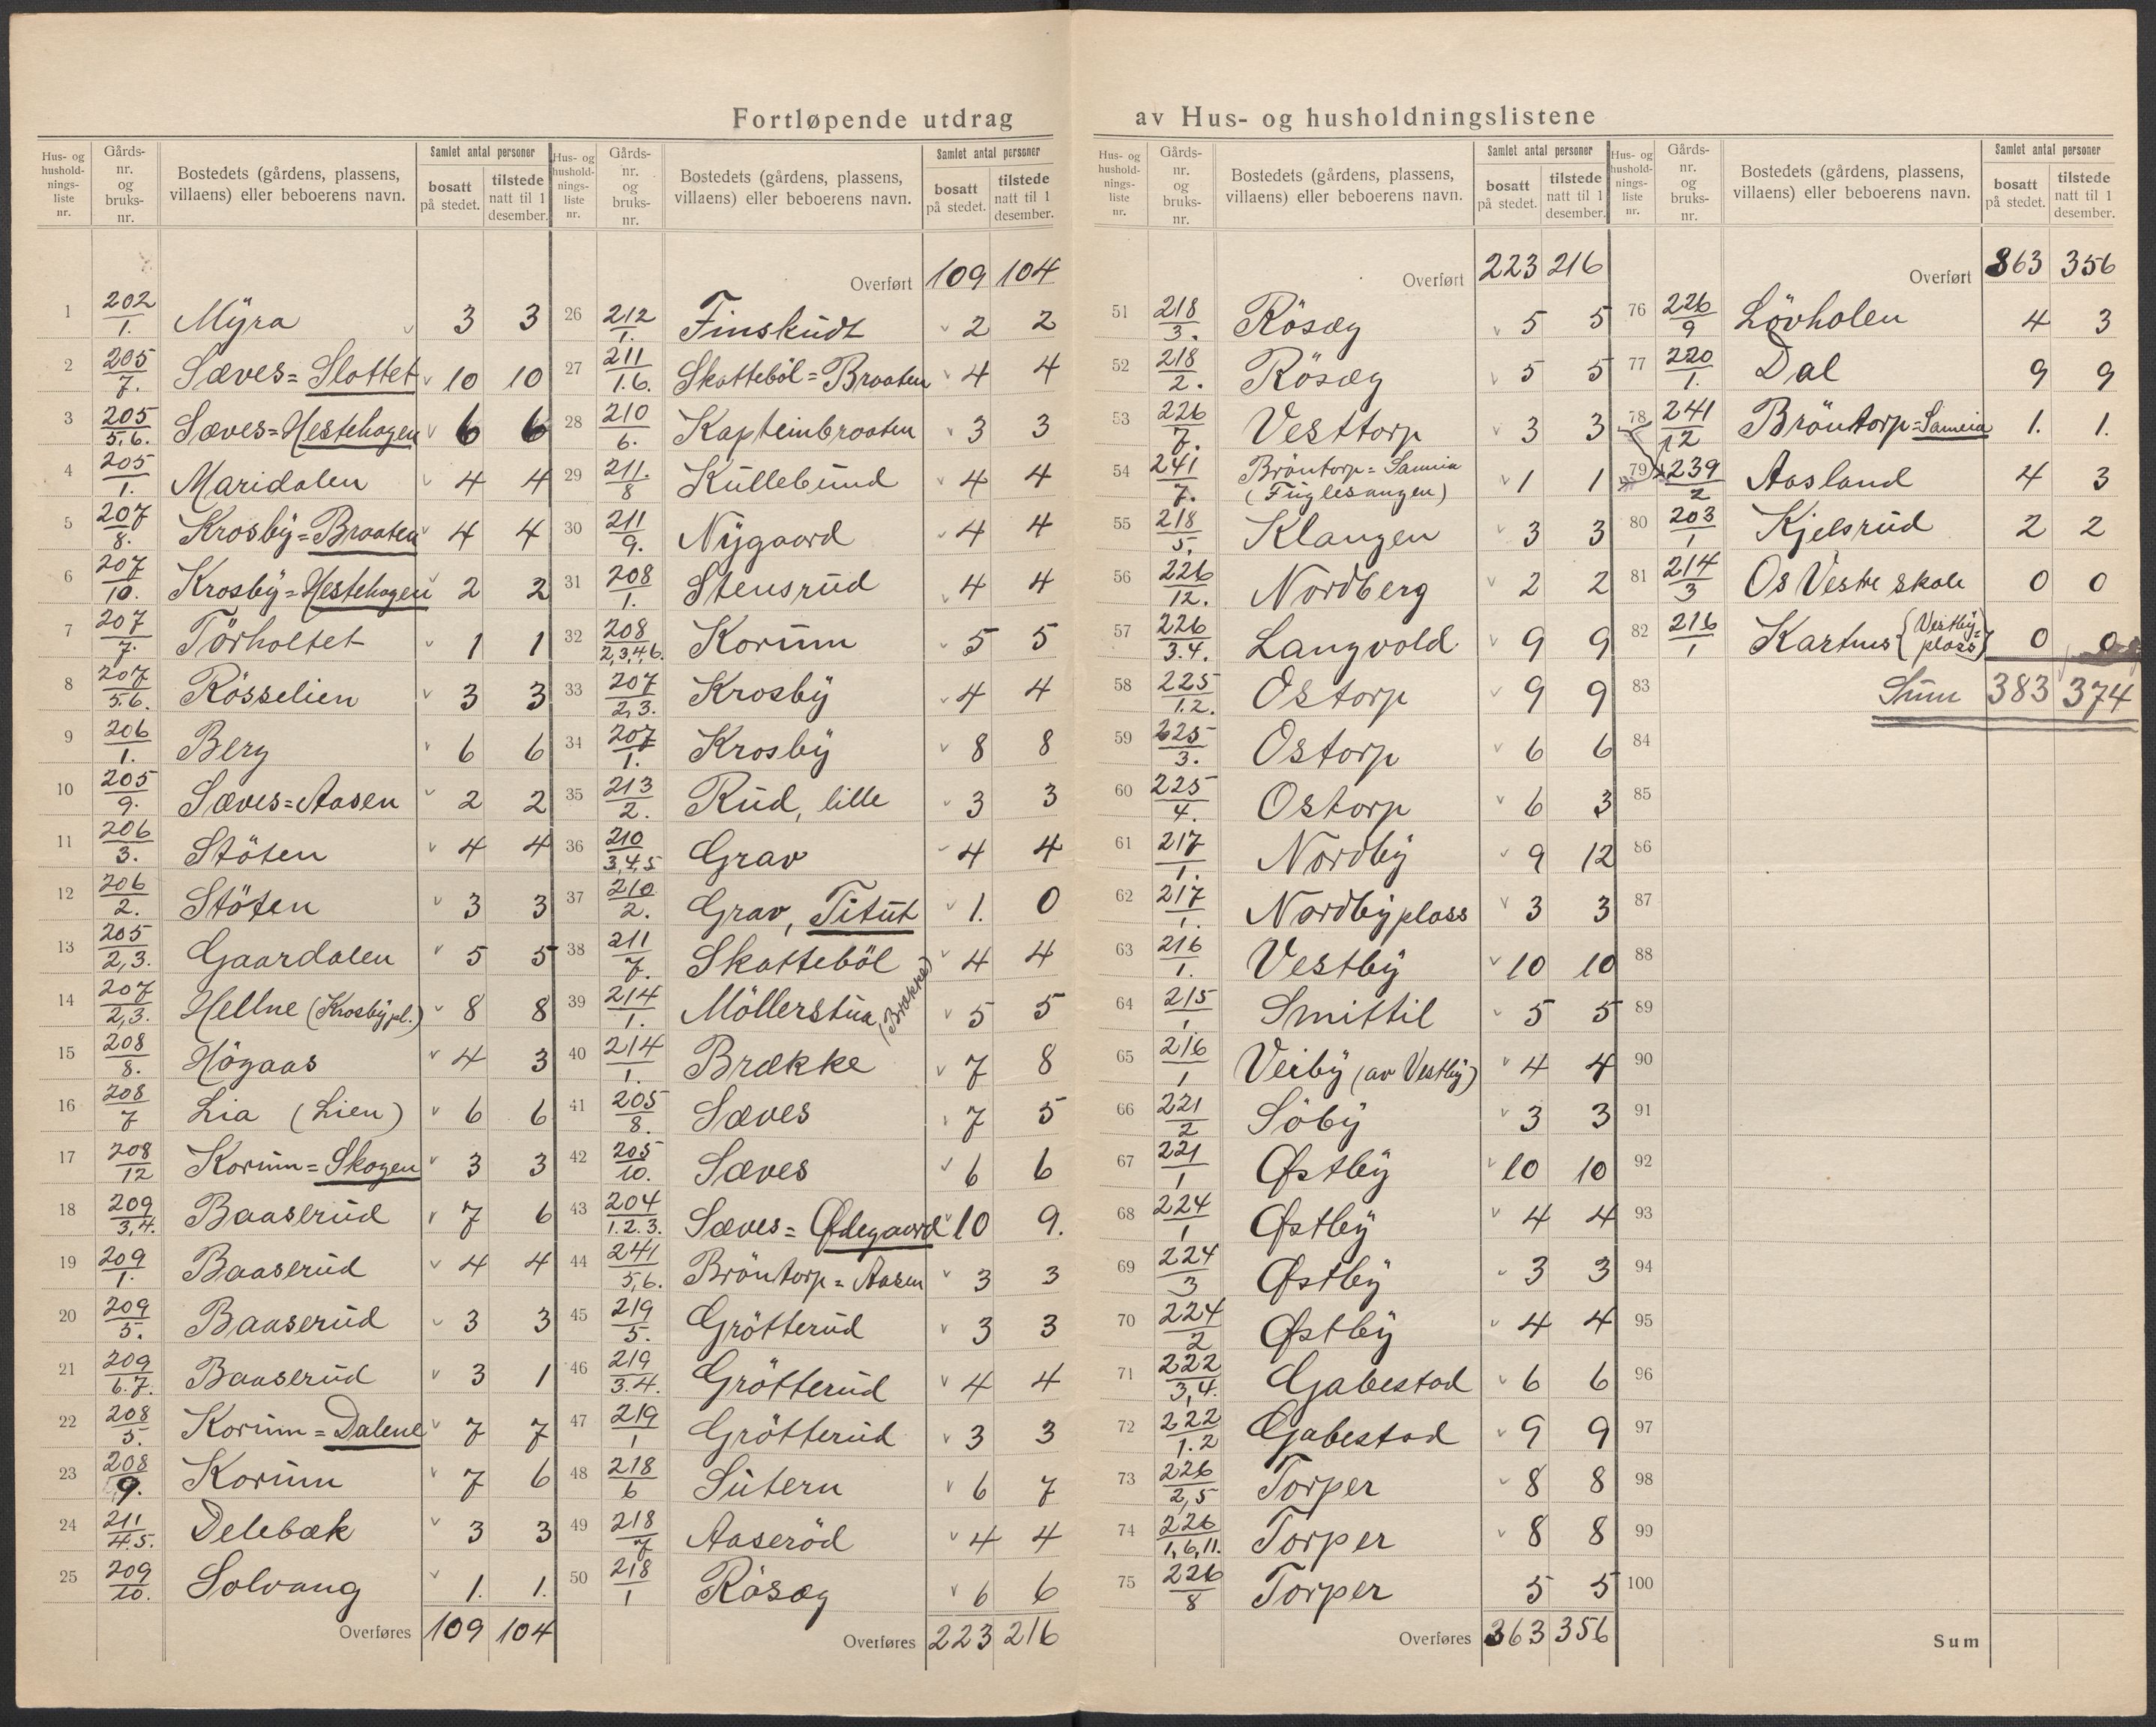 Fortløpende utdrag av Hus- og husholdningslistene
Hus- og hushold-nings-liste nr. Gårds-nr. og bruks-nr. Bostedets (gårdens, plassens, villaens) eller beboerens navn. Samlet antal personer bosatt på stedet. tilstede natt til 1 desember.
1 202/1. Myra 3 3
2 205/7. Sæves=Slottet 10 10
3 205/5.6. Sæves=Hestehagen 6 6
4 205/1. Maridalen 4 4
5 207/8. Krosby=Braaten 4 4
6 207/10. Krosby=Hestehagen 2 2
7 207/7. Törholtet 1 1
8 207/5.6. Rösselien 3 3
9 206/1. Berg 6 6
10 205/9. Sæves=Aasen 2 2
11 206/3. Stöten 4 4
12 206/2. Stöten 3 3
13 205/2,3. Gaardalen 5 5
14 207/2,3. Hellne (Krosby pl.) 8 8
15 208/8. Högaas 4 3
16 208/7 Lia (Lien) 6 6
17 208/12 Korum=Skogen 3 3
18 209/3,4. Baaserud 7 6
19 209/1. Baaserud 4 4
20 209/5. Baaserud 3 3
21 209/6.7. Baaserud 3 1
22 208/5. Korum=Dalene 7 7
23 208/9. Korum 7 6
24 211/4.5. Delebæk 3 3
25 209/10. Solvang 1. 1.
Overføres 109 104
Hus- og hushold-nings-liste nr. Gårds-nr. og bruks-nr. Bostedets (gårdens, plassens, villaens) eller beboerens navn. Samlet antal personer bosatt på stedet. tilstede natt til 1 desember.
Overført 109 104
26 212/1. Finskudt 2 2
27 211/1.6. Skatteböl=Braaten 4 4
28 210/6. Kapteinbraaten 3 3
29 211./8 Kullebund 4 4
30 211/9. Nygaard 4 4
31 208/1. Stensrud 4 4
32 208/2,3,4,6. Korum 5 5
33 207/2,3. Krosby 4 4
34 207/1. Krosby 8 8
35 213/2. Rud, lille 3 3
36 210/3,4,5 Grav 4 4
37 210/2. Grav, Titut 1. 0
38 211/7. Skatteböl 4 4
39 214/1. Möllerstua (Brække) 5 5
40 214/1. Brække 7 8
41 205/8. Sæves 7 5
42 205/10. Sæves 6 6
43 204/1.2.3. Sæves=Ødegaard 10 9.
44 241/5,6. Bröntorp=Aasen 3 3
45 219/5. Grötterud 3 3
46 219/3.4. Grötterud 4 4
47 219/1 Grötterud 3 3
48 218/6 Sutern 6 7
49 218/7 Aaseröd 4 4
50 218/1 Rösæg 6 6
Overføres 223 216
Hus- og hushold-nings-liste nr. Gårds-nr. og bruks-nr. Bostedets (gårdens, plassens, villaens) eller beboerens navn. Samlet antal personer bosatt på stedet. tilstede natt til 1 desember.
Overført 223 216
51 218/3. Rösæg 5 5
52 218/2. Rösæg 5 5
53 226/7. Vesttorp 3 3
54 241/7. Bröntorp=Sameia (Fuglesangen) 1 1
55 218/5. Klangen 3 3
56 226/12. Nordberg 2 2
57 226/3.4. Langvold 9 9
58 225/1.2. Ostorp 9 9
59 225/3. Ostorp 6 6
60 225/4. Ostorp 6 3
61 217/1. Nordby 9 12
62 217/1. Nordbyplass 3 3
63 216/1. Vestby 10 10
64 215/1 Smittil 5 5
65 216/1 Veiby (av Vestby) 4 4
66 221/2 Söby 3 3
67 221/1 Østby 10 10
68 224/1 Østby 4 4
69 224/3 Østby 3 3
70 224/2 Østby 4 4
71 222/3,4. Gabestad 6 6
72 222/1.2 Gabestad 9 9
73 226/2,5 Torper 8 8
74 226/1,6,11. Torper 8 8
75 226/8 Torper 5 5
Overføres 363 356
Hus- og hushold-nings-liste nr. Gårds-nr. og bruks-nr. Bostedets (gårdens, plassens, villaens) eller beboerens navn. Samlet antal personer bosatt på stedet. tilstede natt til 1 desember.
Overført 363 356
76 226/9 Lövholen 4 3
77 220/1. Dal 9 9
78 241/12 Bröntorp=Sameia 1. 1.
79 239/2 Aasland 4 3
80 203/1 Kjelsrud 2 2
81 214/3 Os Vestre skole 0 0
82 216/1 Kartus (Vestby=plass) 0 0
83 Sum 383 374
84
85
86
87
88
89
90
91
92
93
94
95
96
97
98
99
100
Sum